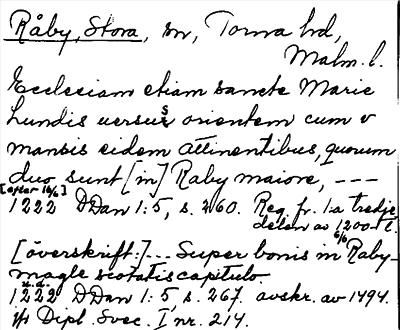 Råby, Stora, sn, Torna hd,
Malm. l.
Ecclesiam etiam sancte Marie
Lundis uersus orientem cum v
mansis eidem attinentibus, quorum
duo sunt [in] Raby maiore, ---
[efter 16/6]
1222 DDan 1:5, s. 260. Reg. fr. 1:a tredje
delen av 1200-t.
[överskrift:]... Super bonis in Raby-
magle scotatis capitulo.
u.d. 6/6
1222 DDan 1:5, s. 267. avskr. av 1494.
Dipl. Svec. I, nr. 214.